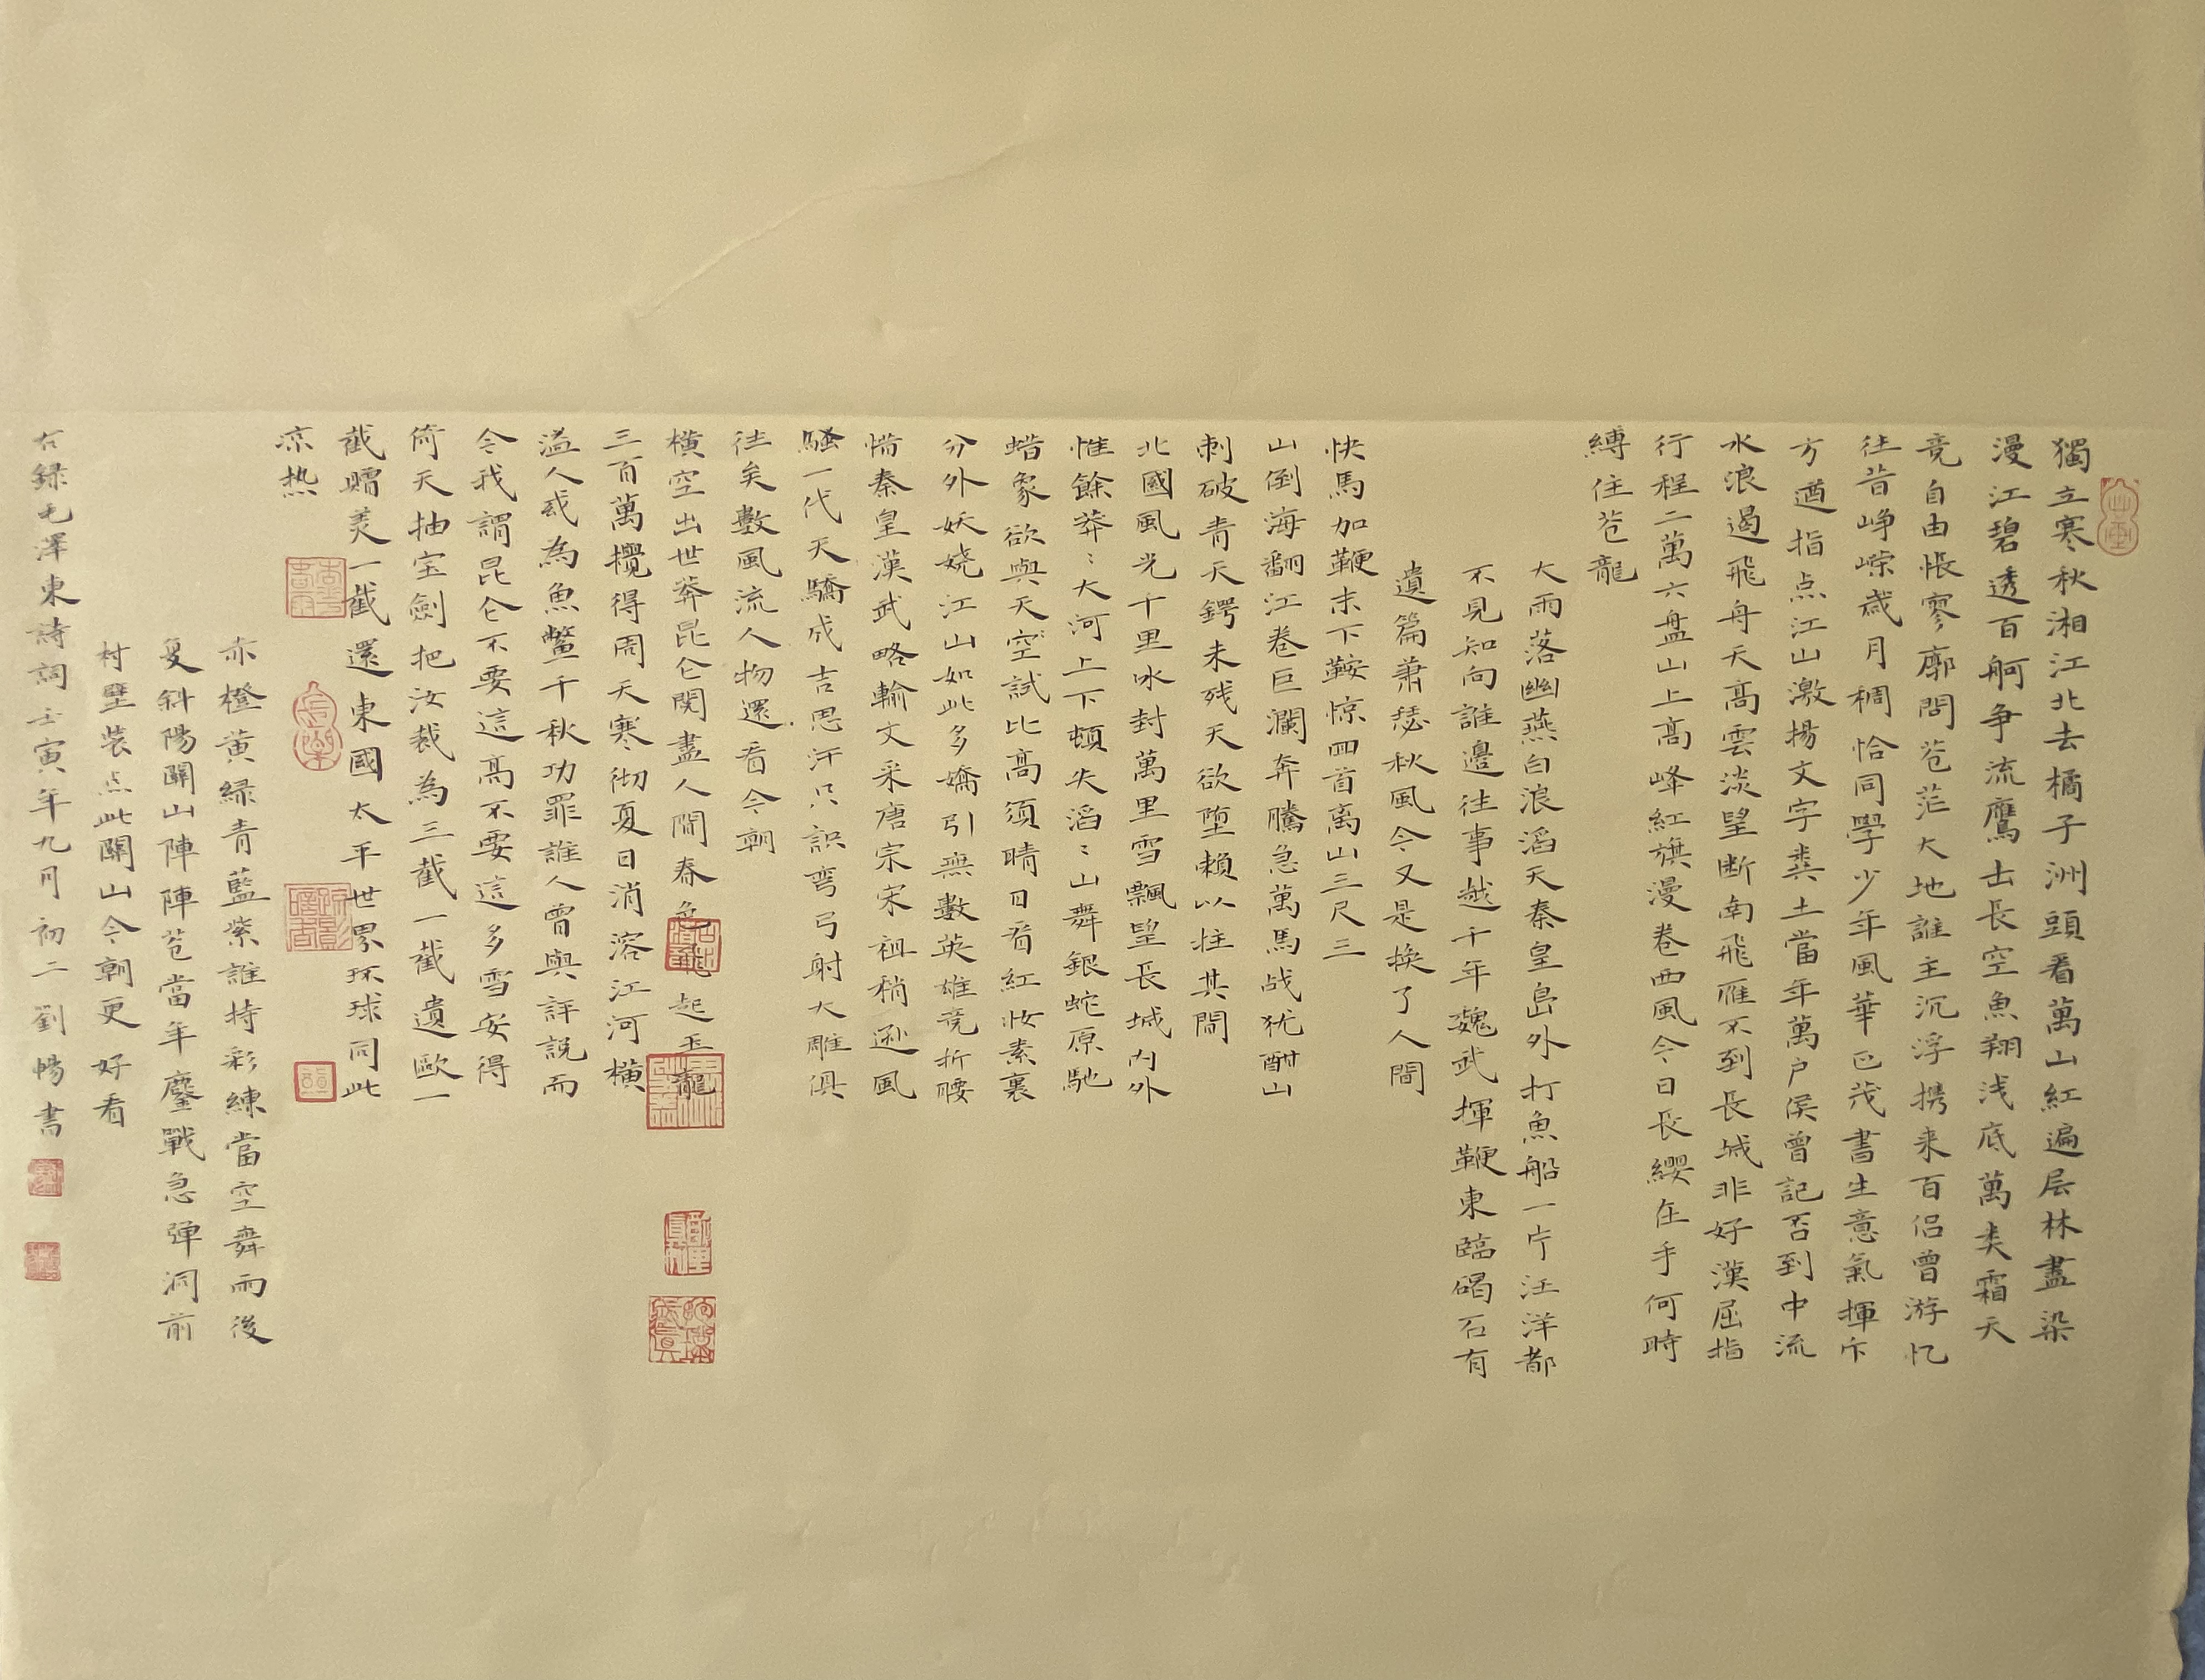 獨立寒秋湘江北去橘子洲頭看萬山紅遍层林盡染
漫江碧透百舸争流鷹击長空魚翔浅底萬类霜天
竞自由悵寥廓問苍茫大地誰主沉浮携来百侣曾游忆
往昔峥嵘歲月稠恰同學少年風華正茂書生意氣揮斥
方遒指点江山激揚文字粪土當年萬户侯曾記否到中流
水浪遏飛舟天高雲淡望断南飛雁不到長城非好漢屈指
行程二萬六盘山上高峰紅旗漫卷西風今日長纓在手何時
縛住苍龍
大雨落幽燕白浪滔天秦皇島外打魚船一片汪洋都
不見知向誰邊往事越千年魏武揮鞭東臨碣石有
遺篇萧瑟秋風今又是换了人間
快馬加鞭未下鞍惊回首离山三尺三
山倒海翻江卷巨瀾奔騰急萬馬战犹酣山
刺破青天鍔未残天欲堕賴以拄其間
北國風光千里冰封萬里雪飄望長城内外
惟餘莽〻大河上下頓失滔〻山舞銀蛇原馳
蜡象欲與天空試比高须晴日看紅妆素裹
分外妖娆江山如此多嬌引無數英雄竞折腰
惜秦皇漢武略輸文采唐宗宋祖稍遜風
騷一代天驕成吉思汗只識弯弓射大雕俱
往矣數風流人物還看今朝
横空出世莽昆仑閱盡人間春色飛起玉龍
三百萬攪得周天寒彻夏日消溶江河横
溢人或為魚鳖千秋功罪誰人曾與評説而
今我謂昆仑不要這高不要這多雪安得
倚天抽宝劍把汝裁為三截一截遺歐一
截赠美一截還東國太平世界环球同此
凉热
赤橙黄緑青藍紫誰持彩練當空舞雨後
复斜陽關山陣陣苍當年鏖戰急弹洞前
村壁装点此關山今朝更好看
右録毛澤東詩詞壬寅年九月初二劉暢書